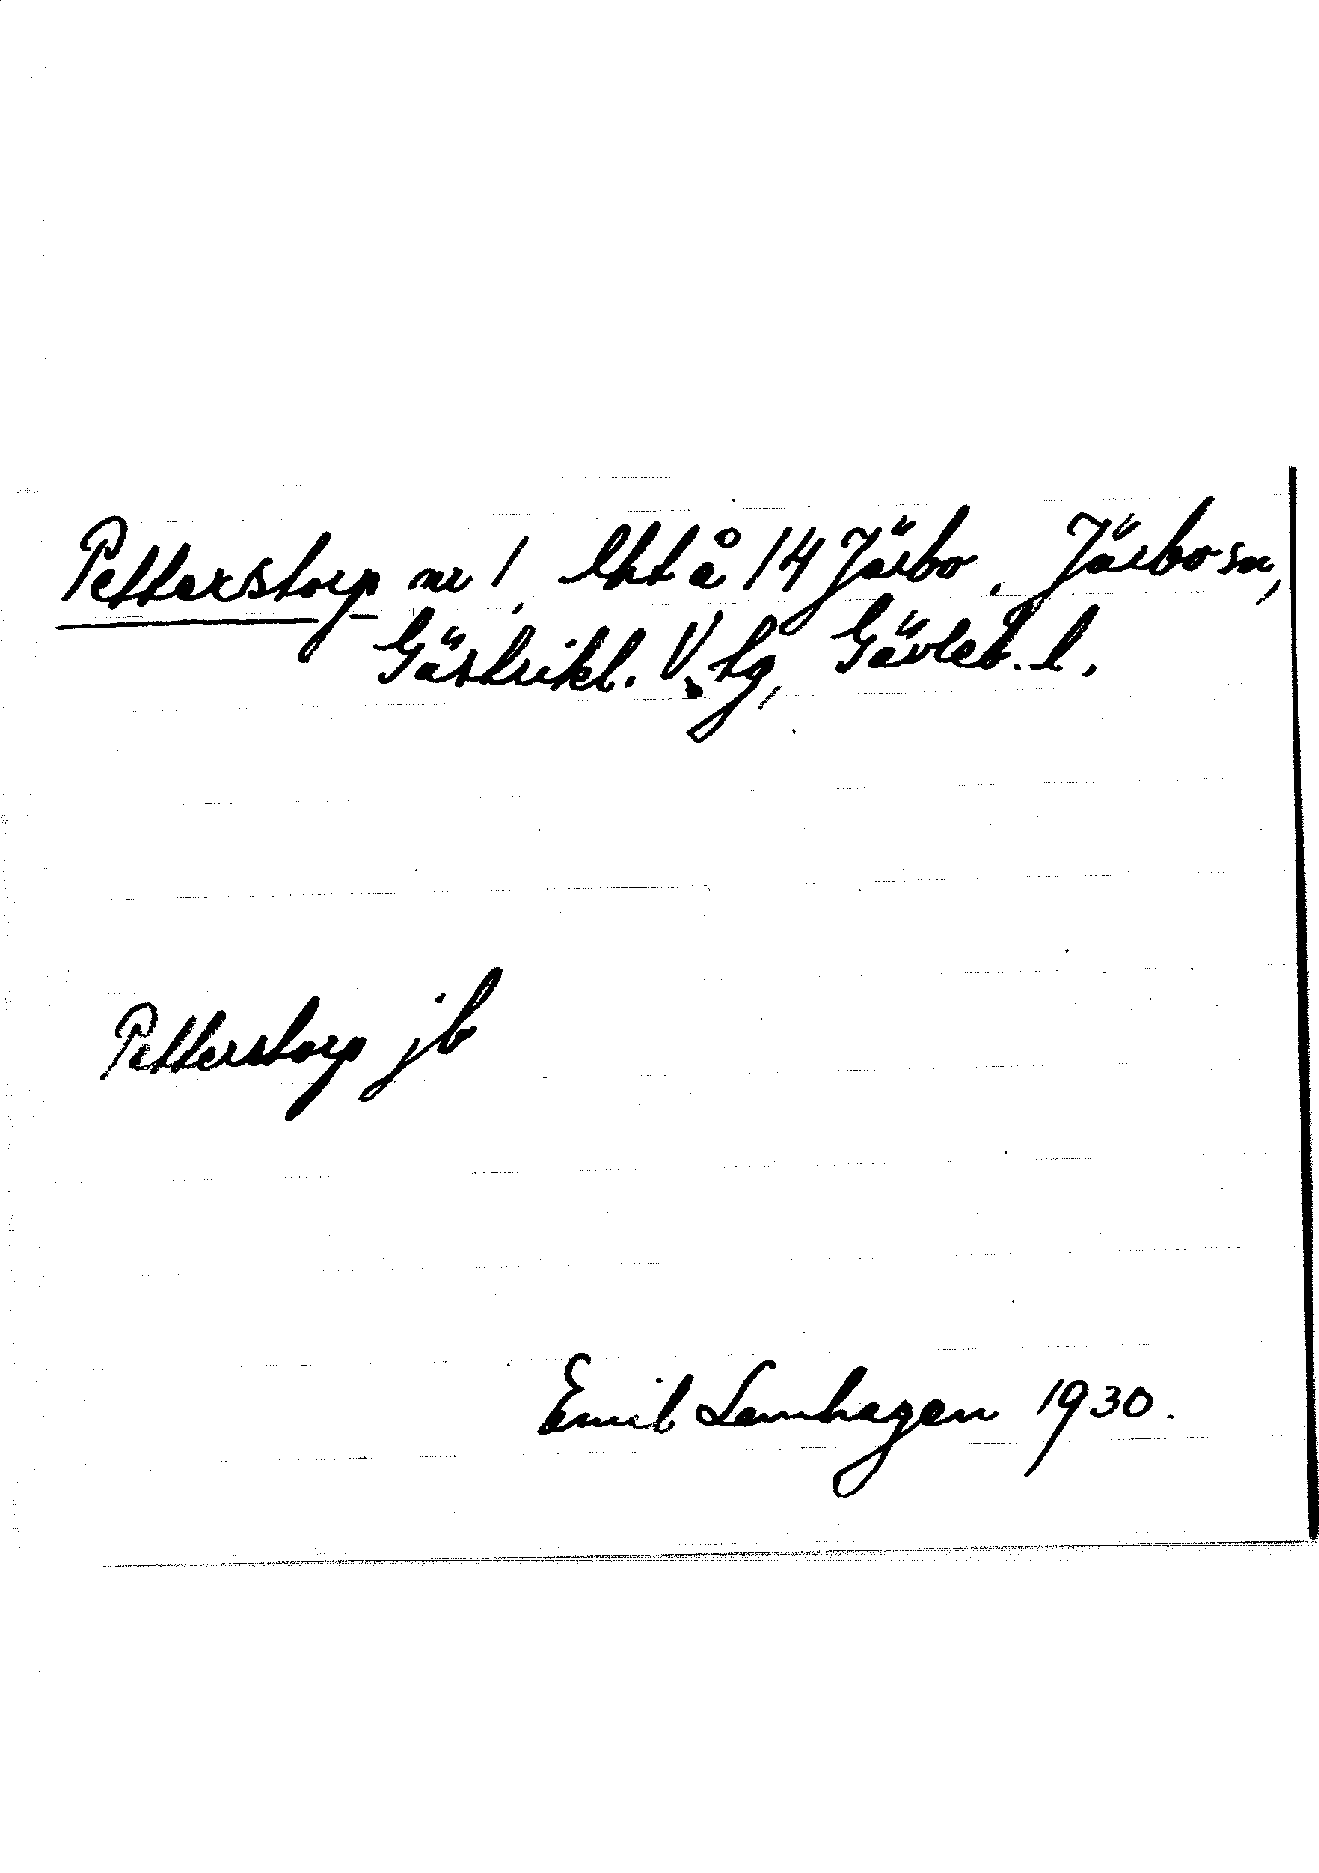 Petterstorp nr 1, lht å 14 Järbo. Järbo sn,
Gästrikl. V. tg, Gävleb. l.
Petterstorp jb
Emil Lamhagen 1930.